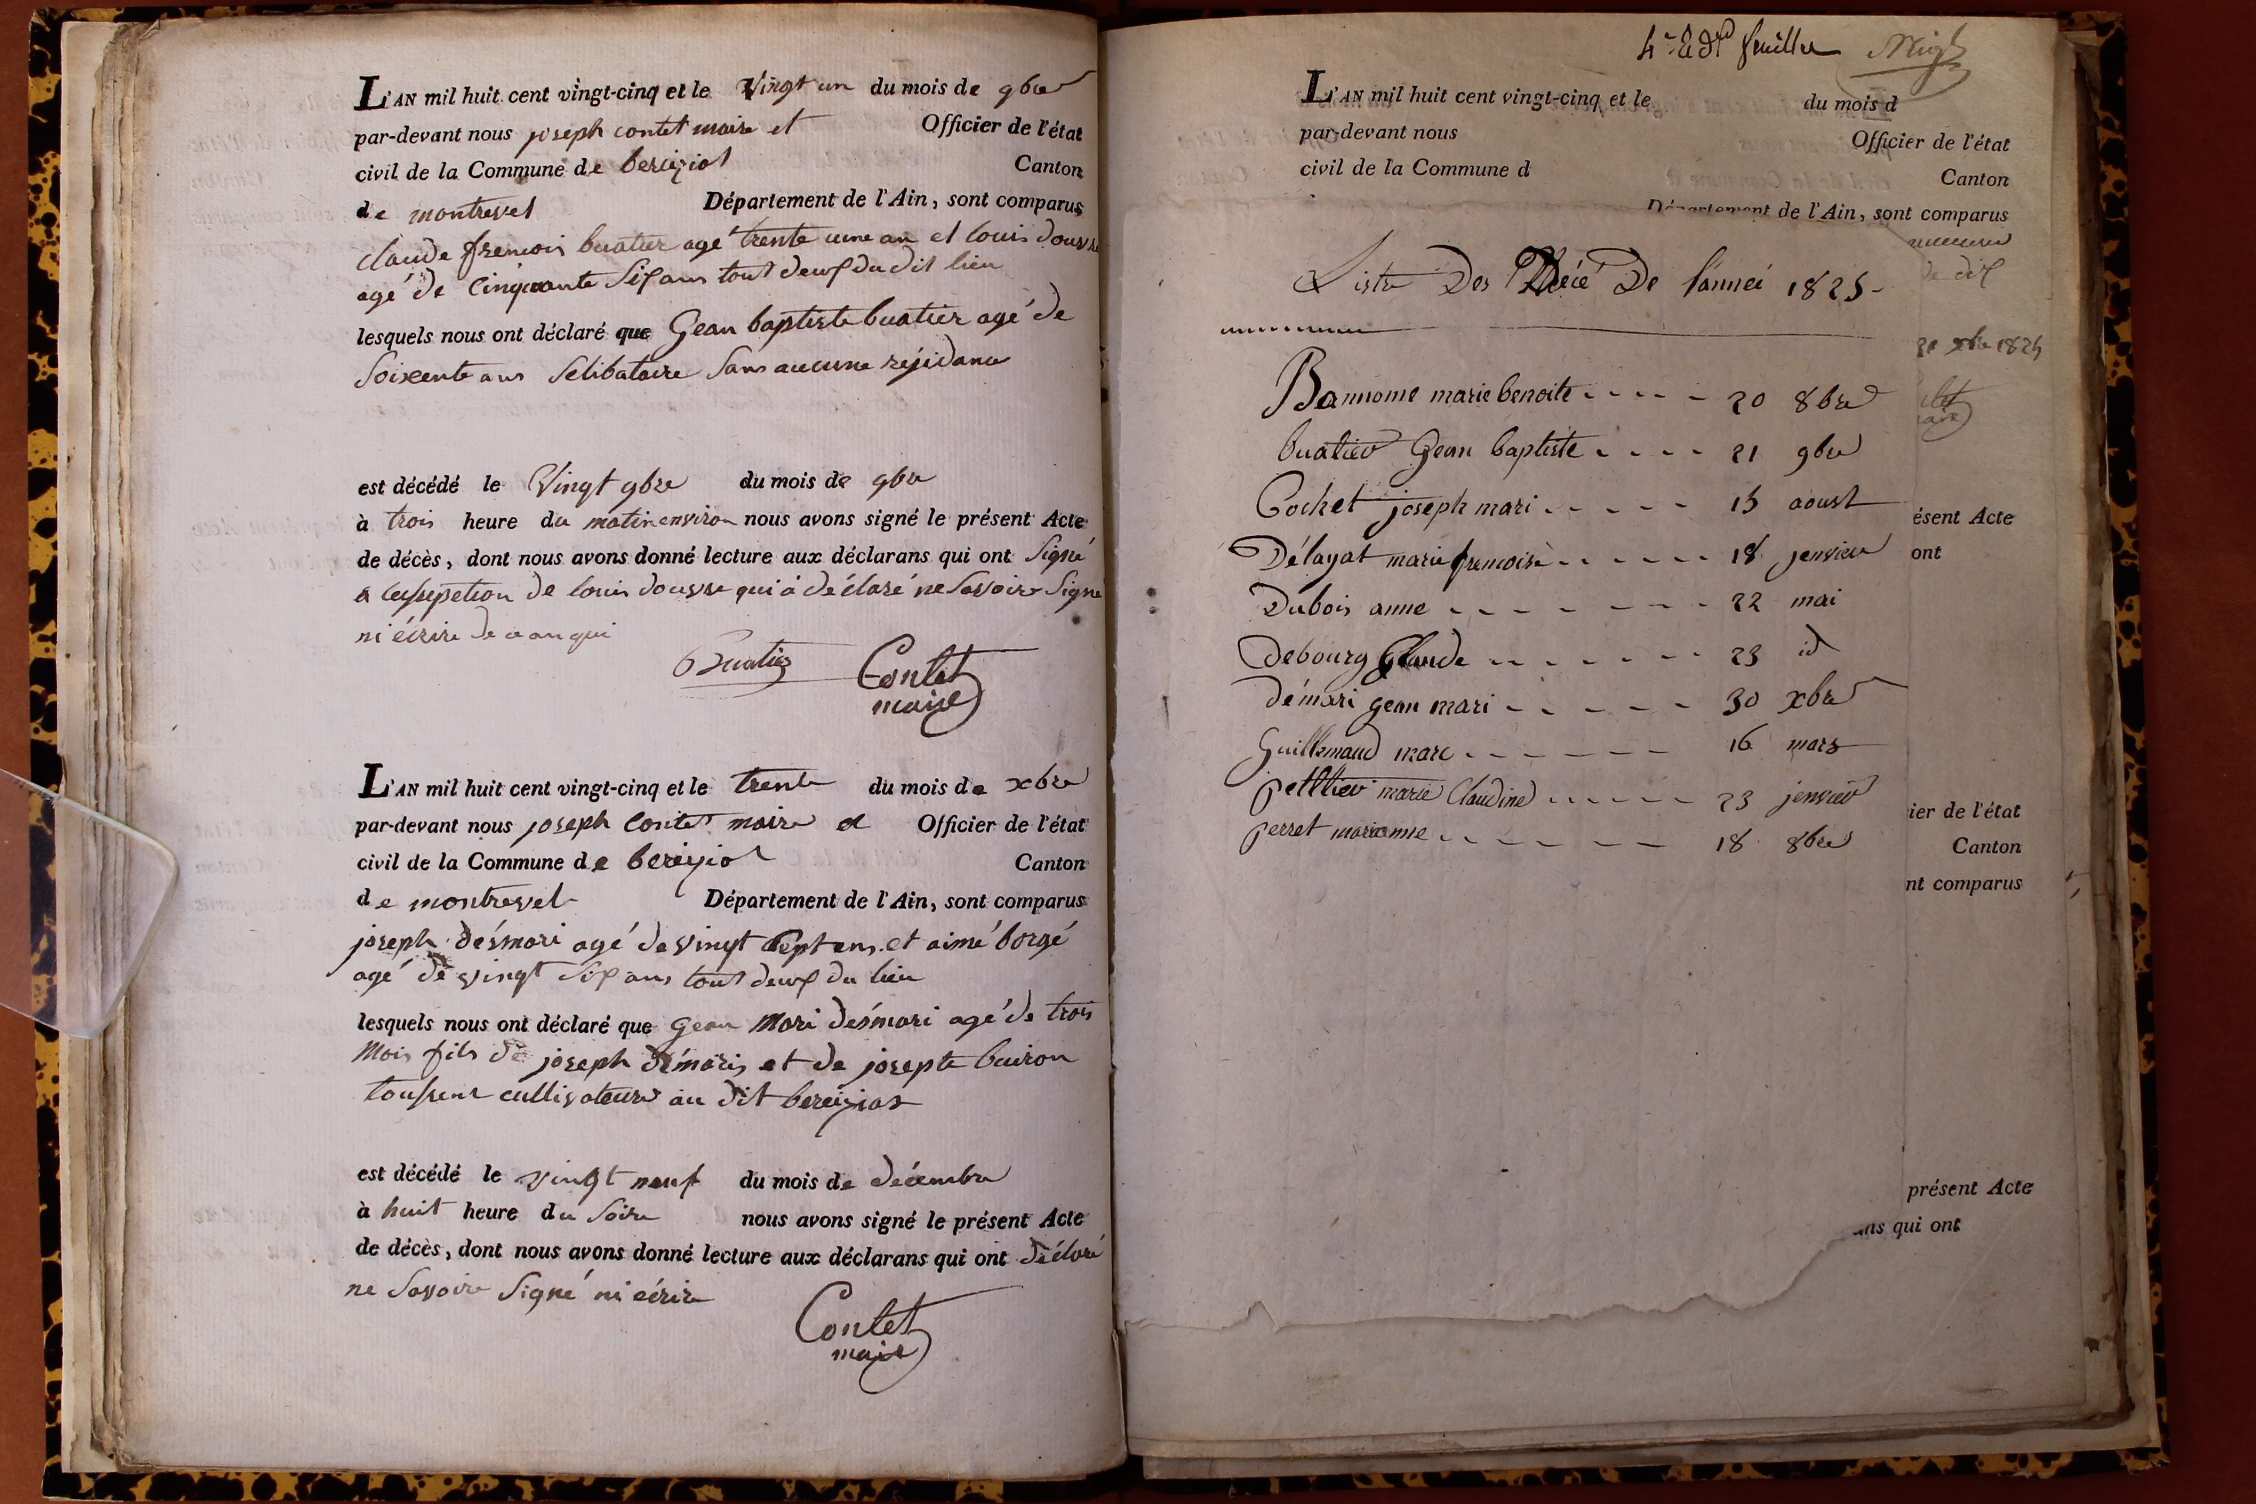 L'AN mil huit cent vingt-cinq et le Vingt un du mois de 9bre
par-devant nous joseph contet maire et Officier de l'état
civil de la Commune de bereiziat Canton
de montrevel Département de l'Ain, sont comparus
claude frencois buatier agé trente une an et louis dousvre
agé de Cinquante Six ans tout deux du dit lieu
lesquels nous ont déclaré que Gean baptiste buatier agé de
Soixente ans Selibataire Sans aucune réjidance
est décédé le Vingt 9bre du mois de 9bre
à trois heure du matin environ nous avons signé le présent Acte
de décès, dont nous avons donné lecture aux déclarans qui ont Signé
a de louis dousvre qui a déclaré ne Savoire Signé
ni écrire de ce anqui
Buatier Contet
maire
L'AN mil huit cent vingt-cinq et le trente du mois de xbre
par-devant nous joseph Contet maire et Officier de l'état
civil de la Commune de bereiziat Canton
de montrevel Département de l'Ain, sont comparus
joseph désmari agé de vingt Sept ans et aimé borgé
agé de vingt Six ans tout deux du lieu
lesquels nous ont déclaré que gean Mari désmari agé de trois
Mois fils de joseph démaris et de josepte buiron
cultivateurs au dit bereiziat
est décédé le vingt neuf du mois de décembre
à huit heure du Soire nous avons signé le présent Acte
de décès, dont nous avons donné lecture aux déclarans qui ont déclaré
ne Savoire Signé ni écrire
Contet
maire
4e & dr feuillet
L'AN mil huit cent vingt-cinq et le du mois d
par-devant nous Officier de l'état
civil de la Commune d Canton
Département de l'Ain, sont comparus
Liste Des Décé De l'année 1825
de dix
31 xbre 1825
Bannome marie benoite - - - - 20 8bre
buatier Gean baptiste - - - - 21 9bre
Cochet joseph mari - - - - - 15 aoust
Délayat marie frencoise - - - - - - 18 jenvier
Dubois anne - - - - - - - 22 mai
debourg Claude - - - - - - 23 id
démari gean mari - - - - - 30 xbre
Guillemaud marc - - - - - - 16 mars
petllier marie Claudine - - - - - 23 jenvier
perret marianne - - - - - - 18 8bre
ésent Acte
ont
ier de l'état
Canton
nt comparus
présent Acte
ans qui ont